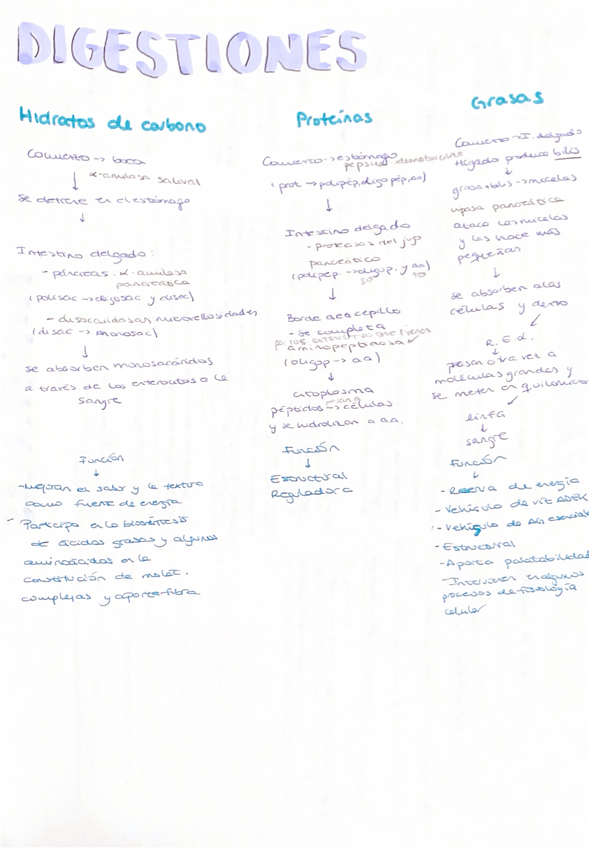 DIGESTIONES
Hidratos de carbono
Comienzo → boca
↓ α-amilasa salival
Se detiene en el estómago
↓
Intestino delgado:
- páncreas: α-amilasa
pancreática
(polisac → oligosac y disac)
- disacaridasas, microvellosidades
(disac → monosac)
↓
Se absorben monosacáridos
a través de los enterocitos a la
sangre
Función
↓
- Mejoran el sabor y la textura
como fuente de energía
- Participa en la biosíntesis
de ácidos grasos y algunos
aminoácidos en la
constitución de moléc.
complejas y aporte fibra
Proteínas
Comienzo → estómago
pepsina
(prot → polipép, oligopép, aa)
↓
Intestino delgado
- proteasas del jugo
pancreático
(polipép → oligop. y aa)
↓
Borde de cepillo
- Se completa
aminopeptidasa
(oligop → aa)
↓
Citoplasma
péptidos → células
y se hidrolizan a aa.
Función
↓
Estructural
Reguladora
Grasas
Comienzo → I. delgado
Hígado produce bilis
grasa + bilis → micelas
lipasa pancreática
ataca las micelas
y las hace más
pequeñas
↓
se absorben a las
células y dentro
↙
R.E.L.
↓
pasan otra vez a
moléculas grandes y
se meten en
↙
linfa
↓
sangre
Función
↓
- Reserva de energía
- Vehículo de vit ADEK
- Vehículo de AG esencial
- Estructural
- Aporta palatabilidad
- Intervienen en algunos
procesos de fisiología
celular